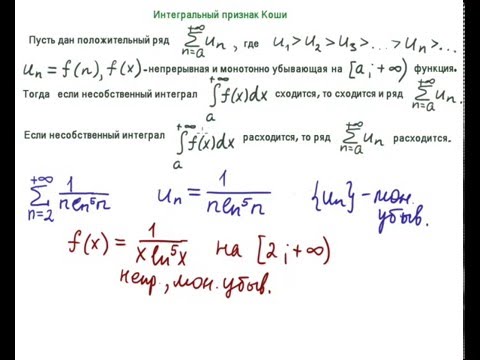 Интегральный признак Коши
Пусть дан положительный ряд \sum_{n=a}^{+\infty} u_n , где u_1 > u_2 > u_3 > ... > u_n > ...
u_n = f(n), f(x) - непрерывная и монотонно убывающая на [a; +\infty) функция.
Тогда если несобственный интеграл \int_{a}^{+\infty} f(x)dx сходится, то сходится и ряд \sum_{n=a}^{+\infty} u_n.
Если несобственный интеграл \int_{a}^{+\infty} f(x)dx расходится, то ряд \sum_{n=a}^{+\infty} u_n расходится.
\sum_{n=2}^{+\infty} \frac{1}{n ln^5 n} u_n = \frac{1}{n ln^5 n} {u_n} - мон. убыв.
f(x) = \frac{1}{x ln^5 x} на [2; +\infty)
непр., мон. убыв.